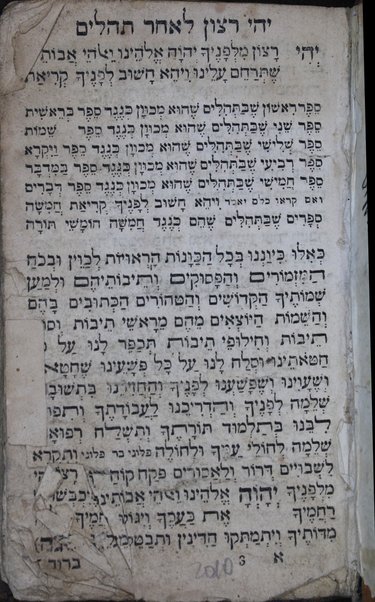 יהי רצון לאחר תהלים
יְהִי רָצוֹן מִלְּפָנֶיךָ יְהוָה אֱלֹהֵינוּ וֵאלֹהֵי אֲבוֹתֵ
שֶׁתְּרַחֵם עָלֵינוּ וִיהֵא חָשׁוּב לְפָנֶיךָ קְרִיאַת
סֵפֶר רִאשׁוֹן שֶׁבַּתְּהִלִּים שֶׁהוּא מְכוּוָן כְּנֶגֶד סֵפֶר בְּרֵאשִׁית
סֵפֶר שֵׁנִי שֶׁבַּתְּהִלִּים שֶׁהוּא מְכוּוָן כְּנֶגֶד סֵפֶר שְׁמוֹת
סֵפֶר שְׁלִישִׁי שֶׁבַּתְּהִלִּים שֶׁהוּא מְכוּוָן כְּנֶגֶד סֵפֶר וַיִּקְרָא
סֵפֶר רְבִיעִי שֶׁבַּתְּהִלִּים שֶׁהוּא מְכוּוָן כְּנֶגֶד סֵפֶר בַּמִּדְבָּר
סֵפֶר חֲמִישִׁי שֶׁבַּתְּהִלִּים שֶׁהוּא מְכוּוָן כְּנֶגֶד סֵפֶר דְּבָרִים
ואם קראו כלם יאמר וִיהֵא חָשׁוּב לְפָנֶיךָ קְרִיאַת חֲמִשָּׁה
סְפָרִים שֶׁבַּתְּהִלִּים שֶׁהֵם כְּנֶגֶד חֲמִשָּׁה חוּמְשֵׁי תּוֹרָה
כְּאִלּוּ כִּיוַּנְנוּ בְּכָל הַכַּוָּנוֹת הָרְאוּיוֹת לְכַוֵּין וּבְכֹחַ
הַמִּזְמוֹרִים וְהַפְּסוּקִים וְתֵיבוֹתֵיהֶם וּלְמַעַן
שְׁמוֹתֶיךָ הַקְּדוֹשִׁים וְהַטְּהוֹרִים הַכְּתוּבִים בָּהֶם
וְהַשֵּׁמוֹת הַיּוֹצְאִים מֵהֶם מֵרָאשֵׁי תֵיבוֹת וְסוֹ
תֵּיבוֹת וְחִילּוּפֵי תֵיבוֹת תְּכַפֵּר לָנוּ עַל
חַטֹּאתֵינוּ וּסְלַח לָנוּ עַל כָּל פְּשָׁעֵינוּ שֶׁחָטָא
וְשֶׁעָוִינוּ וְשֶׁפָּשַׁעְנוּ לְפָנֶיךָ וְהַחֲזִירֵנוּ בִּתְשׁוּבָ
שְׁלֵמָה לְפָנֶיךָ וְהַדְרִיכֵנוּ לַעֲבוֹדָתֶךָ וְתִפְ
לִבֵּנוּ בְּתַלְמוּד תּוֹרָתֶךָ וְתִשְׁלַח רְפוּאָ
שְׁלֵמָה לְחוֹלֵי עַמֶּךָ וּלְחוֹלֶה פלוני בר פלוני וְתִקְרָא
לִשְׁבוּיִים דְּרוֹר וְלַאֲסוּרִים פְּקַח קוֹחַ
מִלְּפָנֶיךָ יְהוָה אֱלֹהֵינוּ וֵאלֹהֵי אֲבוֹתֵינוּ
רַחֲמֶיךָ אֶת כַּעַסְךָ
מִדּוֹתֶיךָ וְיִתְמַתְּקוּ הַדִּינִין
א 3 ברוך
2010